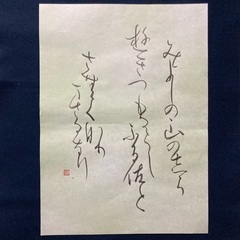 みよしの山の志ら
遊きつもるらし
ふる佐と
さむく那り
まさるなり